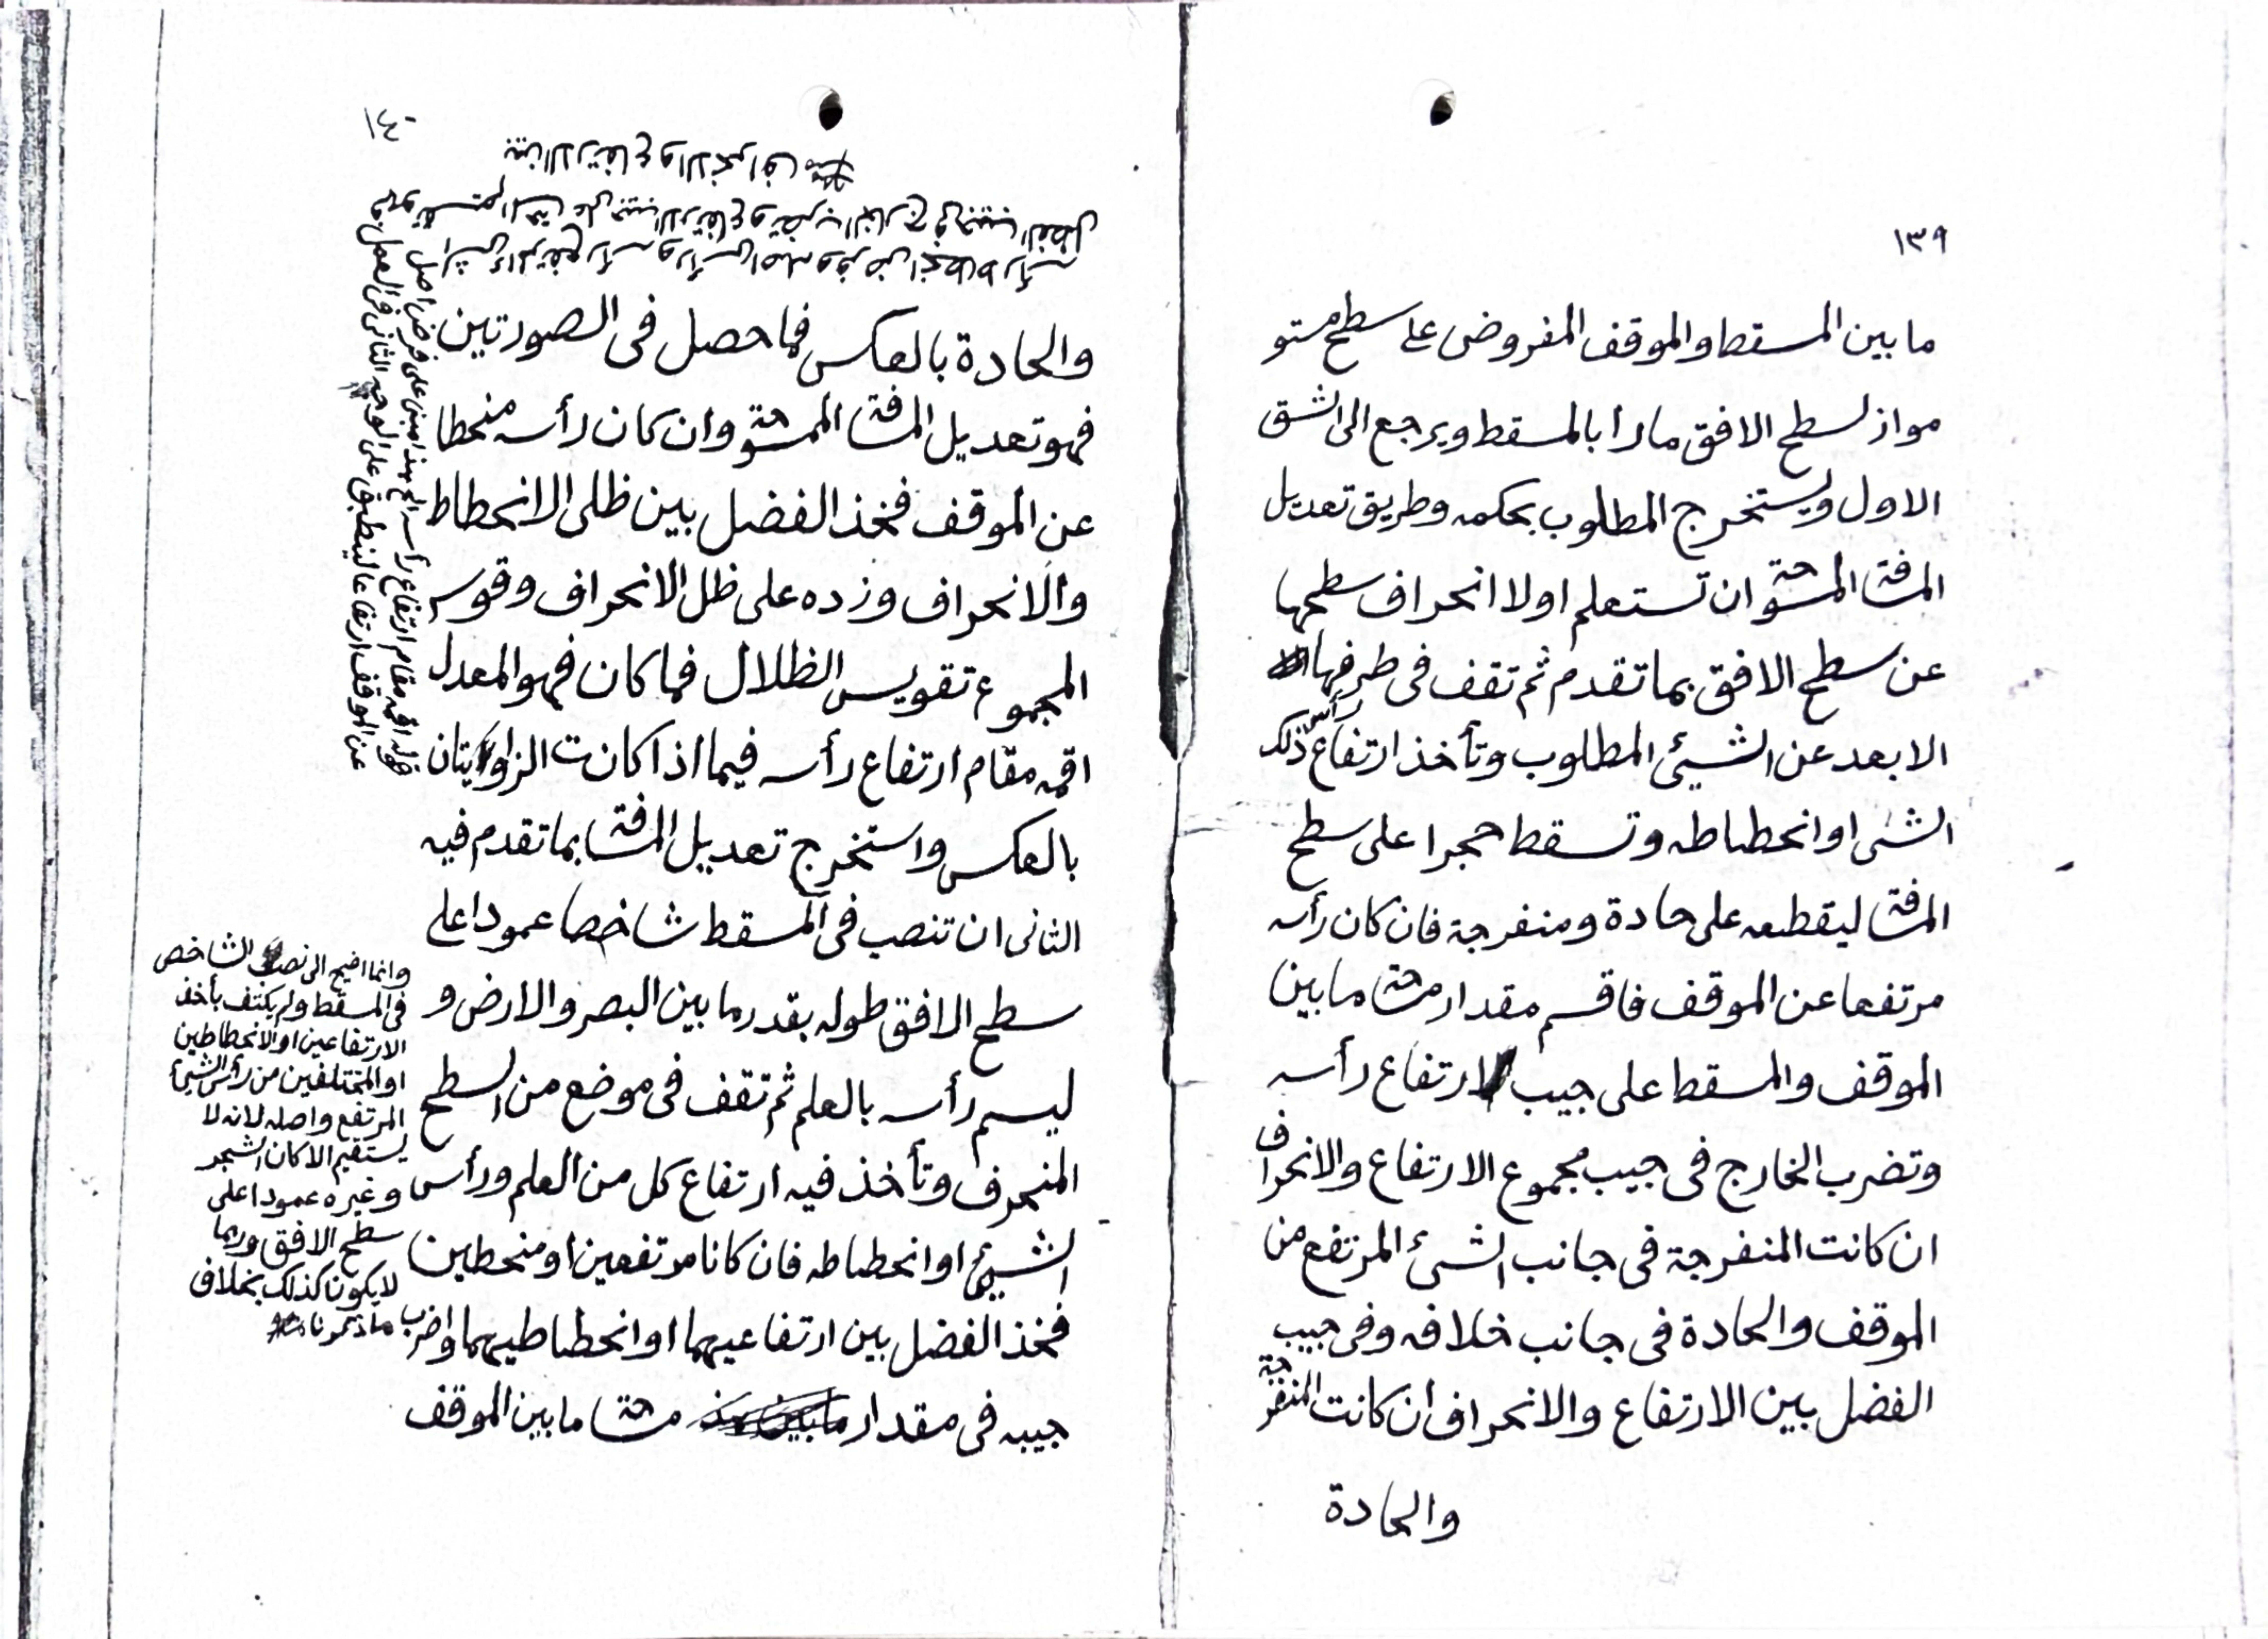 ١٣٩
ما بين المسقط والموقف المفروض على سطح مستو
مواز لسطح الافق مارا بالمسقط ويرجع الى الشق
الاول ويستخرج المطلوب بحكمه وطريق تعديل
المسافة المشوحة ان تستعلم اولا انحراف سطحها
عن سطح الافق بما تقدم ثم تقف فى طرفها
الابعد عن الشيئ المطلوب وتأخذ ارتفاع رأس ذلك
الشئ او انحطاطه وتسقط حجرا على سطح
المسافة ليقطعه على حادة ومنفرجة فان كان رأسه
مرتفعا عن الموقف فاقسم مقدار مساحة ما بين
الموقف والمسقط على جيب ارتفاع رأسه
وتضرب الخارج فى جيب مجموع الارتفاع والانحراف
ان كانت المنفرجة فى جانب الشئ المرتفع من
الموقف والحادة فى جانب خلافه وفى جيب
الفضل بين الارتفاع والانحراف ان كانت المنفرجة
والحادة
١٤٠
والحادة بالعكس فما حصل فى الصورتين
فهو تعديل المسافة الممسوحة وان كان رأسه منحطا
عن الموقف فخذ الفضل بين ظلى الانحطاط
والانحراف وزده على ظل الانحراف وقوس
المجموع تقويس الظلال فما كان فهو المعدل
اقمه مقام ارتفاع رأسه فيما اذا كانت الزاويتان
بالعكس واستخرج تعديل المسافة بما تقدم فيه
الثانى ان تنصب فى المسقط شاخصا عمودا على
سطح الافق طوله بقدر ما بين البصر والارض و
ليسم رأسه بالعلم ثم تقف فى موضع من السطح
المنحرف وتأخذ فيه ارتفاع كل من العلم ورأس
الشيئ او انحطاطه فان كانا مرتفعين او منحطين
فخذ الفضل بين ارتفاعيهما او انحطاطيهما واضرب
جيبه فى مقدار مساحة ما بين الموقف
قوله اقمه مقام ارتفاع رأسه الخ هذا مبنى على فرض اصل
عن الموقف ارتفاعا لينطبق على الوجه الثانى فى العمل
وانما احتيج الى نصب الشاخص
فى المسقط ولم يكتف بأخذ
الارتفاعين او الانحطاطين
او المختلفين من رأس الشيئ
المرتفع واصله لانه لا
يستقيم الا كان الشجر
وغيره عمودا على
سطح الافق وربما
لا يكون كذلك بخلاف
ما ذكرنا